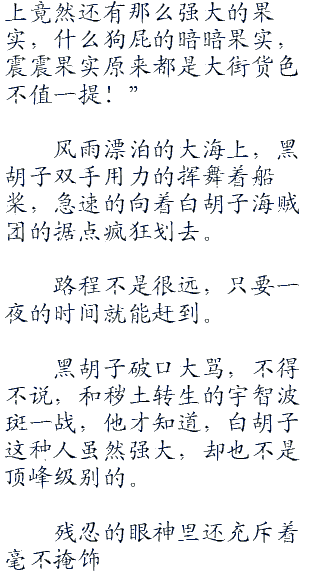 上竟然还有那么强大的果
实，什么狗屁的暗暗果实，
震震果实原来都是大街货色
不值一提！”
风雨漂泊的大海上，黑
胡子双手用力的挥舞着船
桨，急速的向着白胡子海贼
团的据点疯狂划去。
路程不是很远，只要一
夜的时间就能赶到。
黑胡子破口大骂，不得
不说，和秽土转生的宇智波
斑一战，他才知道，白胡子
这种人虽然强大，却也不是
顶峰级别的。
残忍的眼神里还充斥着
毫不掩饰